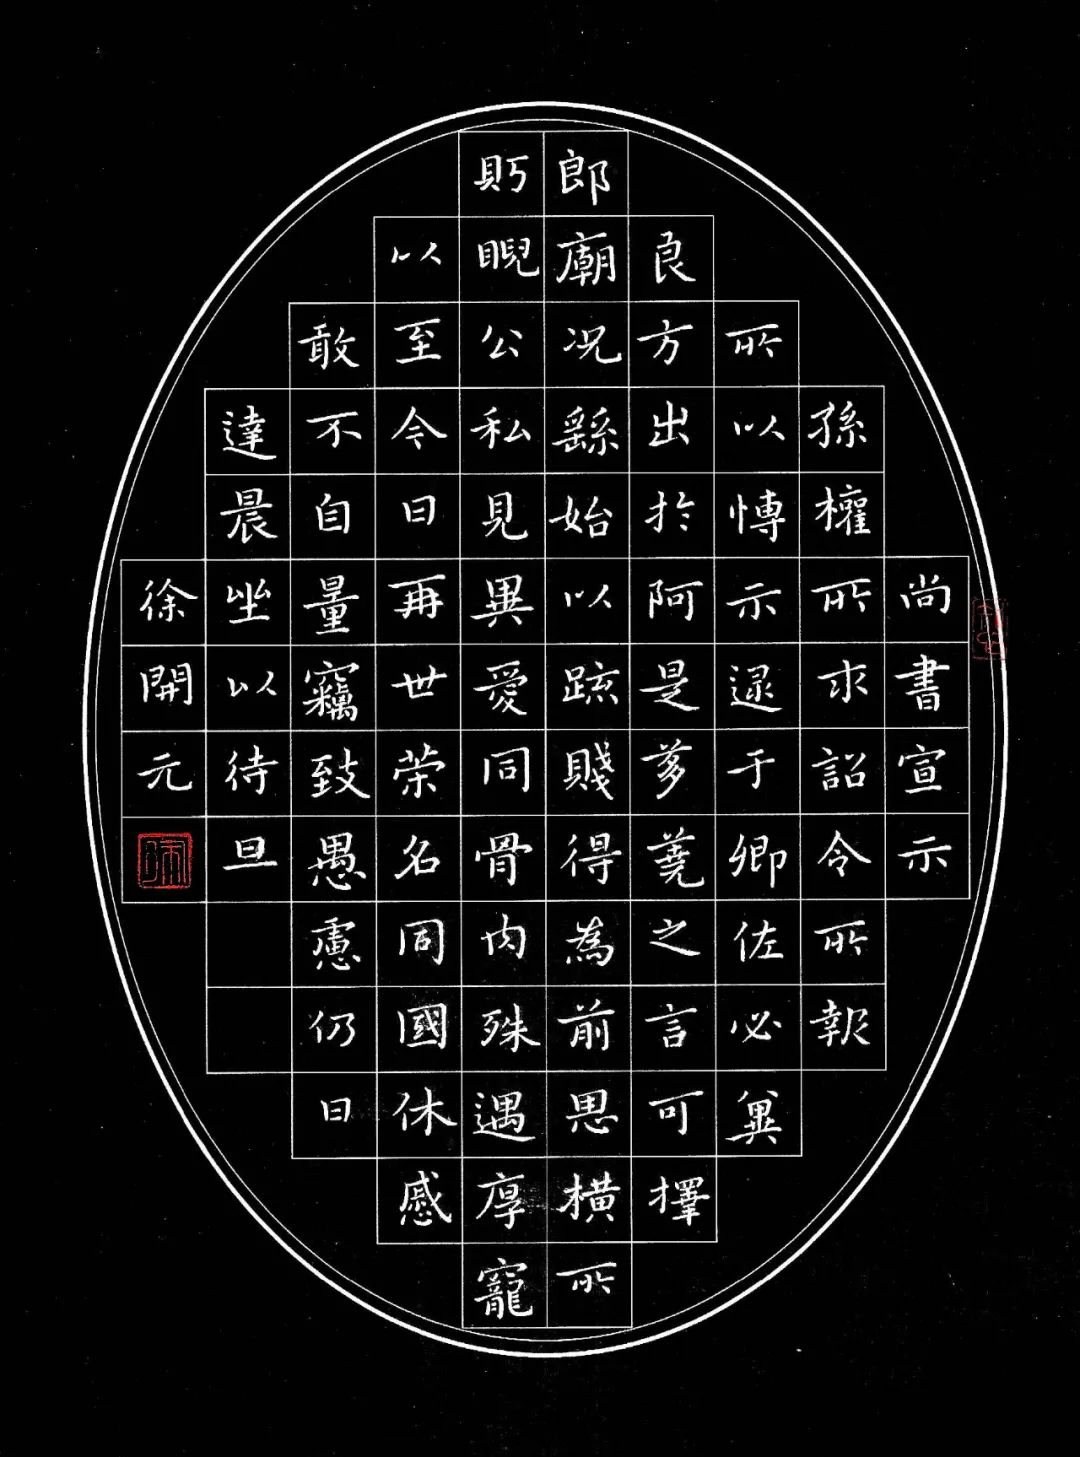 尚書宣示
孫權所求詔令所報
所以博示逮于卿佐必冀
良方出於阿是芻蕘之言可擇
郎廟況繇始以疏賤得為前恩橫所
眄睨公私見異愛同骨肉殊遇厚寵
以至今日再世荣名同國休慼
敢不自量竊致愚慮仍日
達晨坐以待旦
徐開元